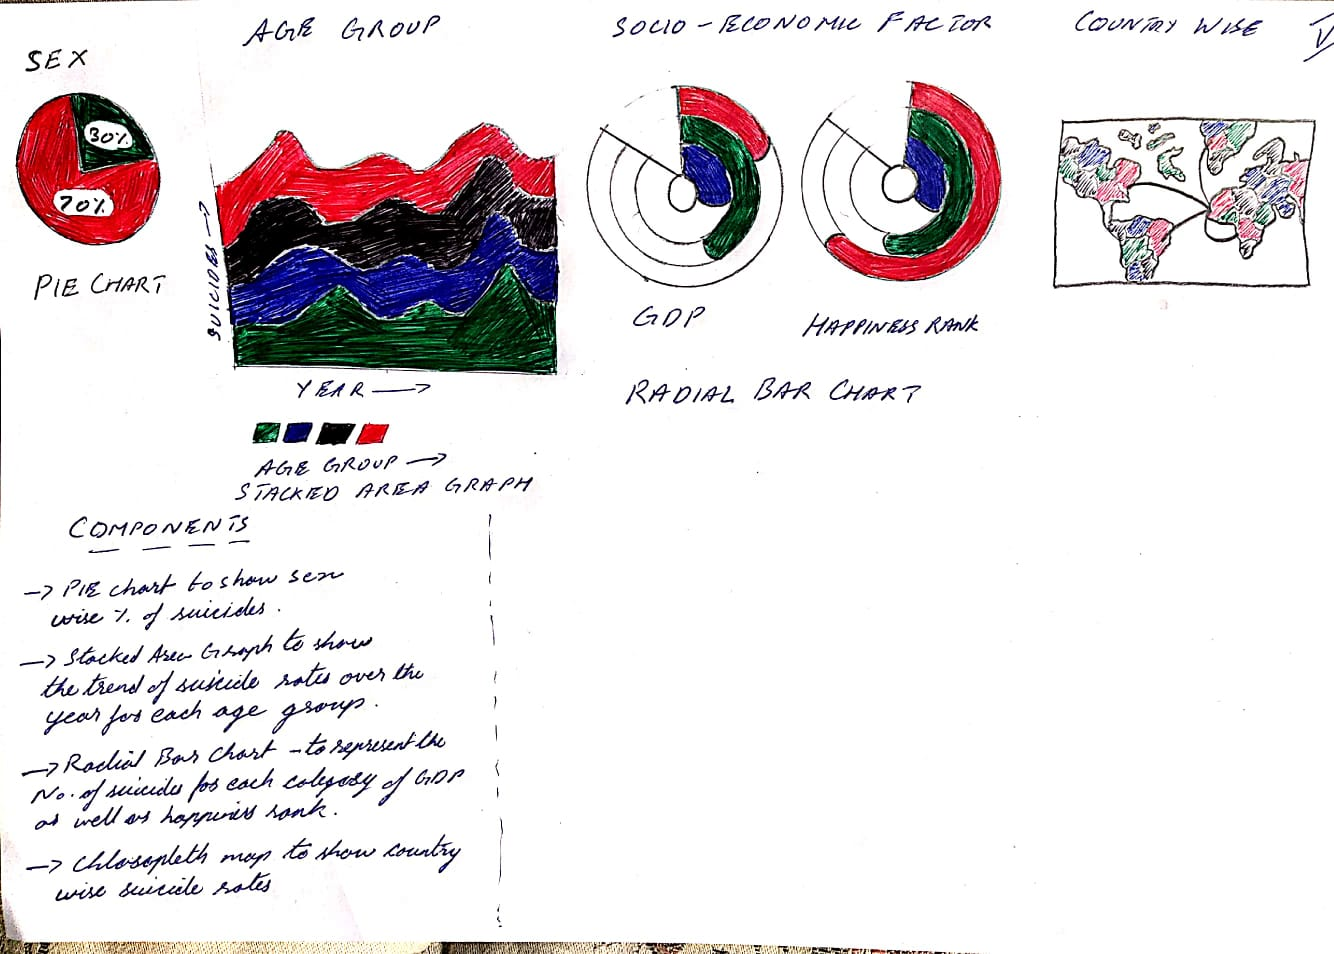 SEX
30%
70%
PIE CHART
AGE GROUP
SUICIDES →
YEAR →
AGE GROUP →
STACKED AREA GRAPH
SOCIO - ECONOMIC FACTOR
GDP
HAPPINESS RANK
RADIAL BAR CHART
COUNTRY WISE
COMPONENTS
→ PIE chart to show sex
wise % of suicides.
→ Stacked Area Graph to show
the trend of suicide rates over the
year for each age group.
→ Radial Bar Chart - to represent the
No. of suicides for each category of GDP
as well as happiness rank.
→ Chloropleth map to show country
wise suicide rates